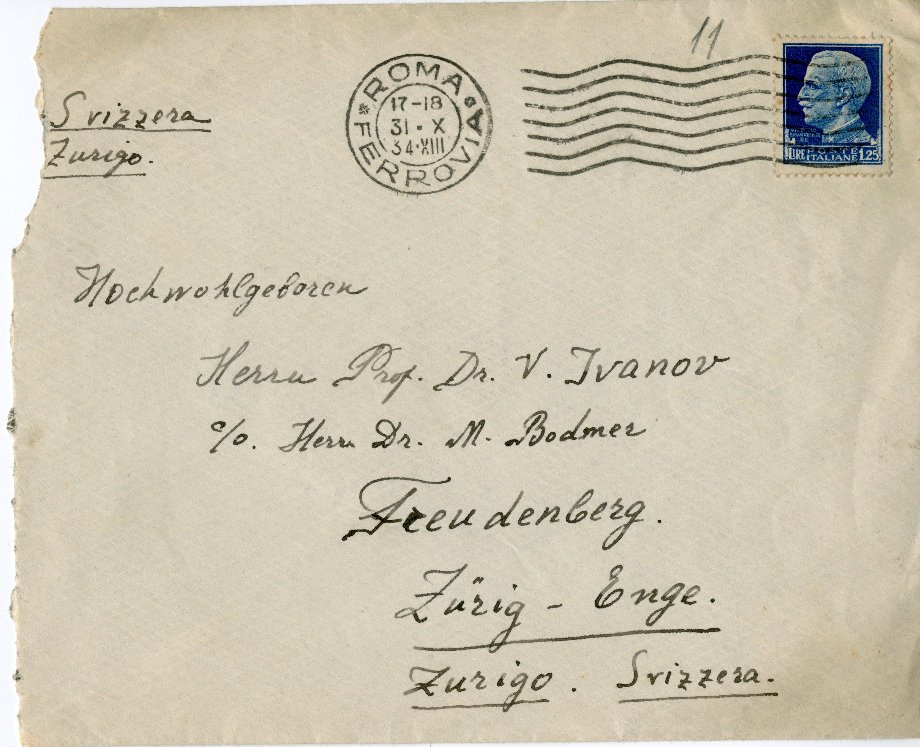 11
Svizzera
Zurigo.
ROMA FERROVIA
17-18
31·X
34·XIII
POSTE
LIRE ITALIANE 1,25
Hochwohlgeboren
Herrn Prof. Dr. V. Ivanov
c/o. Herrn Dr. M. Bodmer
Freudenberg.
Zürig - Enge.
Zurigo. Svizzera.